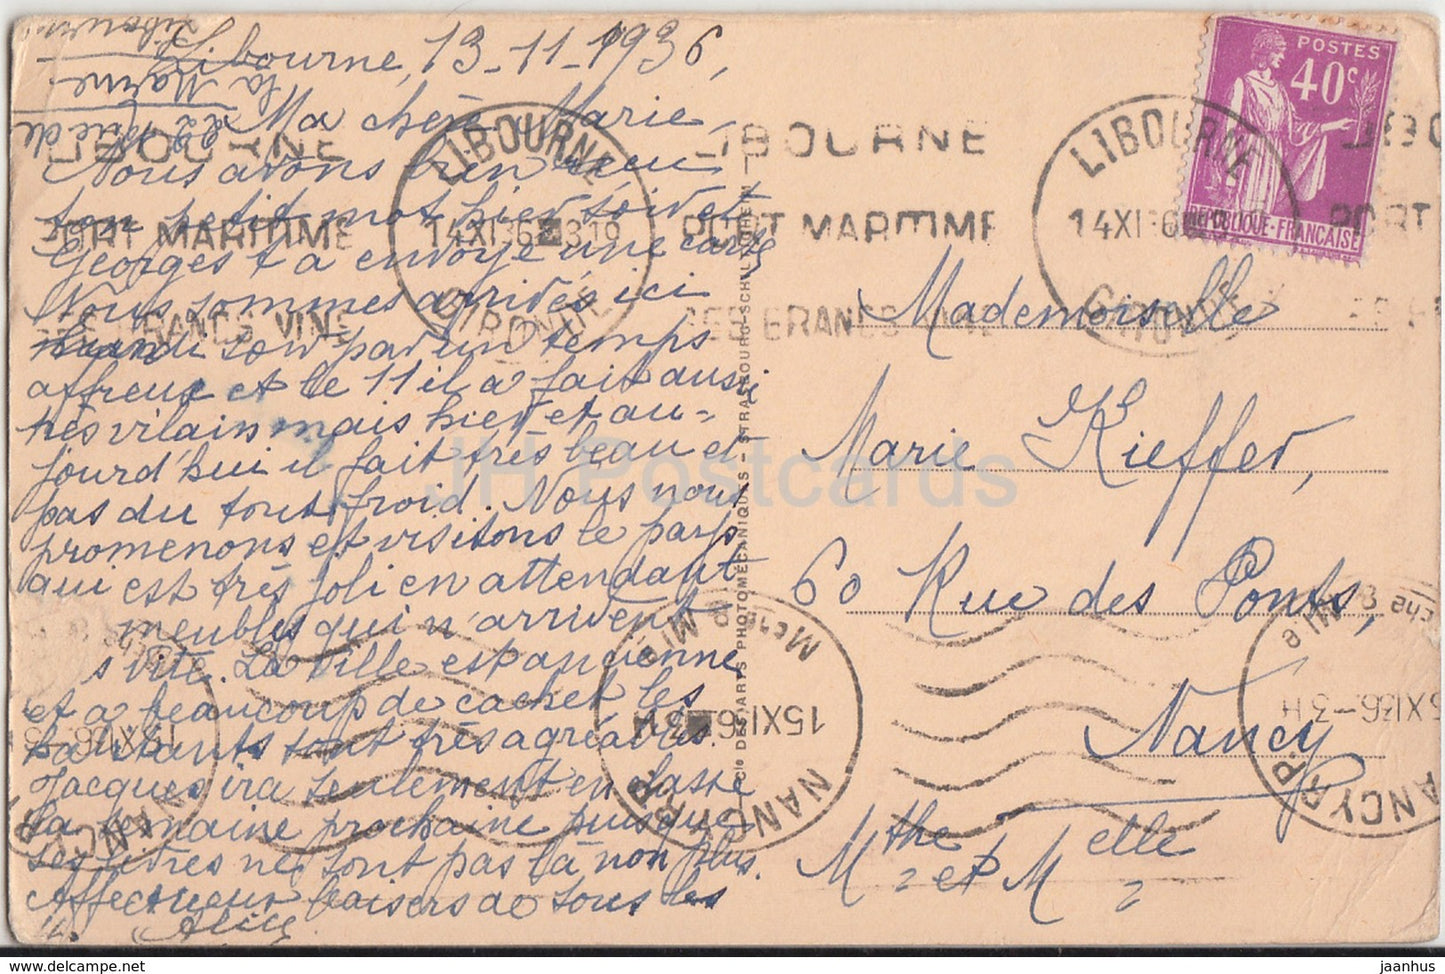 Libourne, 13-11-1936,
Ma chère Marie,
Nous avons bien reçu
ton petit mot hier soir et
Georges t'a envoyé une carte
Nous sommes arrivés ici
soir par un temps
affreux et le 11 il a fait aussi
très vilain mais hier et au-
jourd'hui il fait très beau et
pas du tout froid. Nous nous
promenons et visitons le pays
qui est très joli en attendant
meubles qui n'arrivent
vite. La ville est ancienne
et a beaucoup de cachet les
habitants sont très agréables
Jacques ira seulement en classe
la semaine prochaine puisque
ses livres ne sont pas là non plus.
Affectueux baisers de tous les
4. Alice
22 rue de
la Marne
Libourne
POSTES
40c
REPUBLIQUE-FRANÇAISE
LIBOURNE
PORT MARITIME
SES GRANDS VINS
LIBOURNE
14 XI 36
GIRONDE
LIBOURNE
PORT MARITIME
SES GRANDS VINS
LIBOURNE
14 XI 36
GIRONDE
Mademoiselle
Marie Kieffer,
60 Rue des Ponts,
Nancy
Mthe et Melle
NANCY R.P.
15 XI 36 - 3 H
Mthe & Mlle
Cie DES ARTS PHOTOMÉCANIQUES - STRASBOURG-SCHILTIGHEIM
JH Postcards
www.delcampe.net
jaanhus